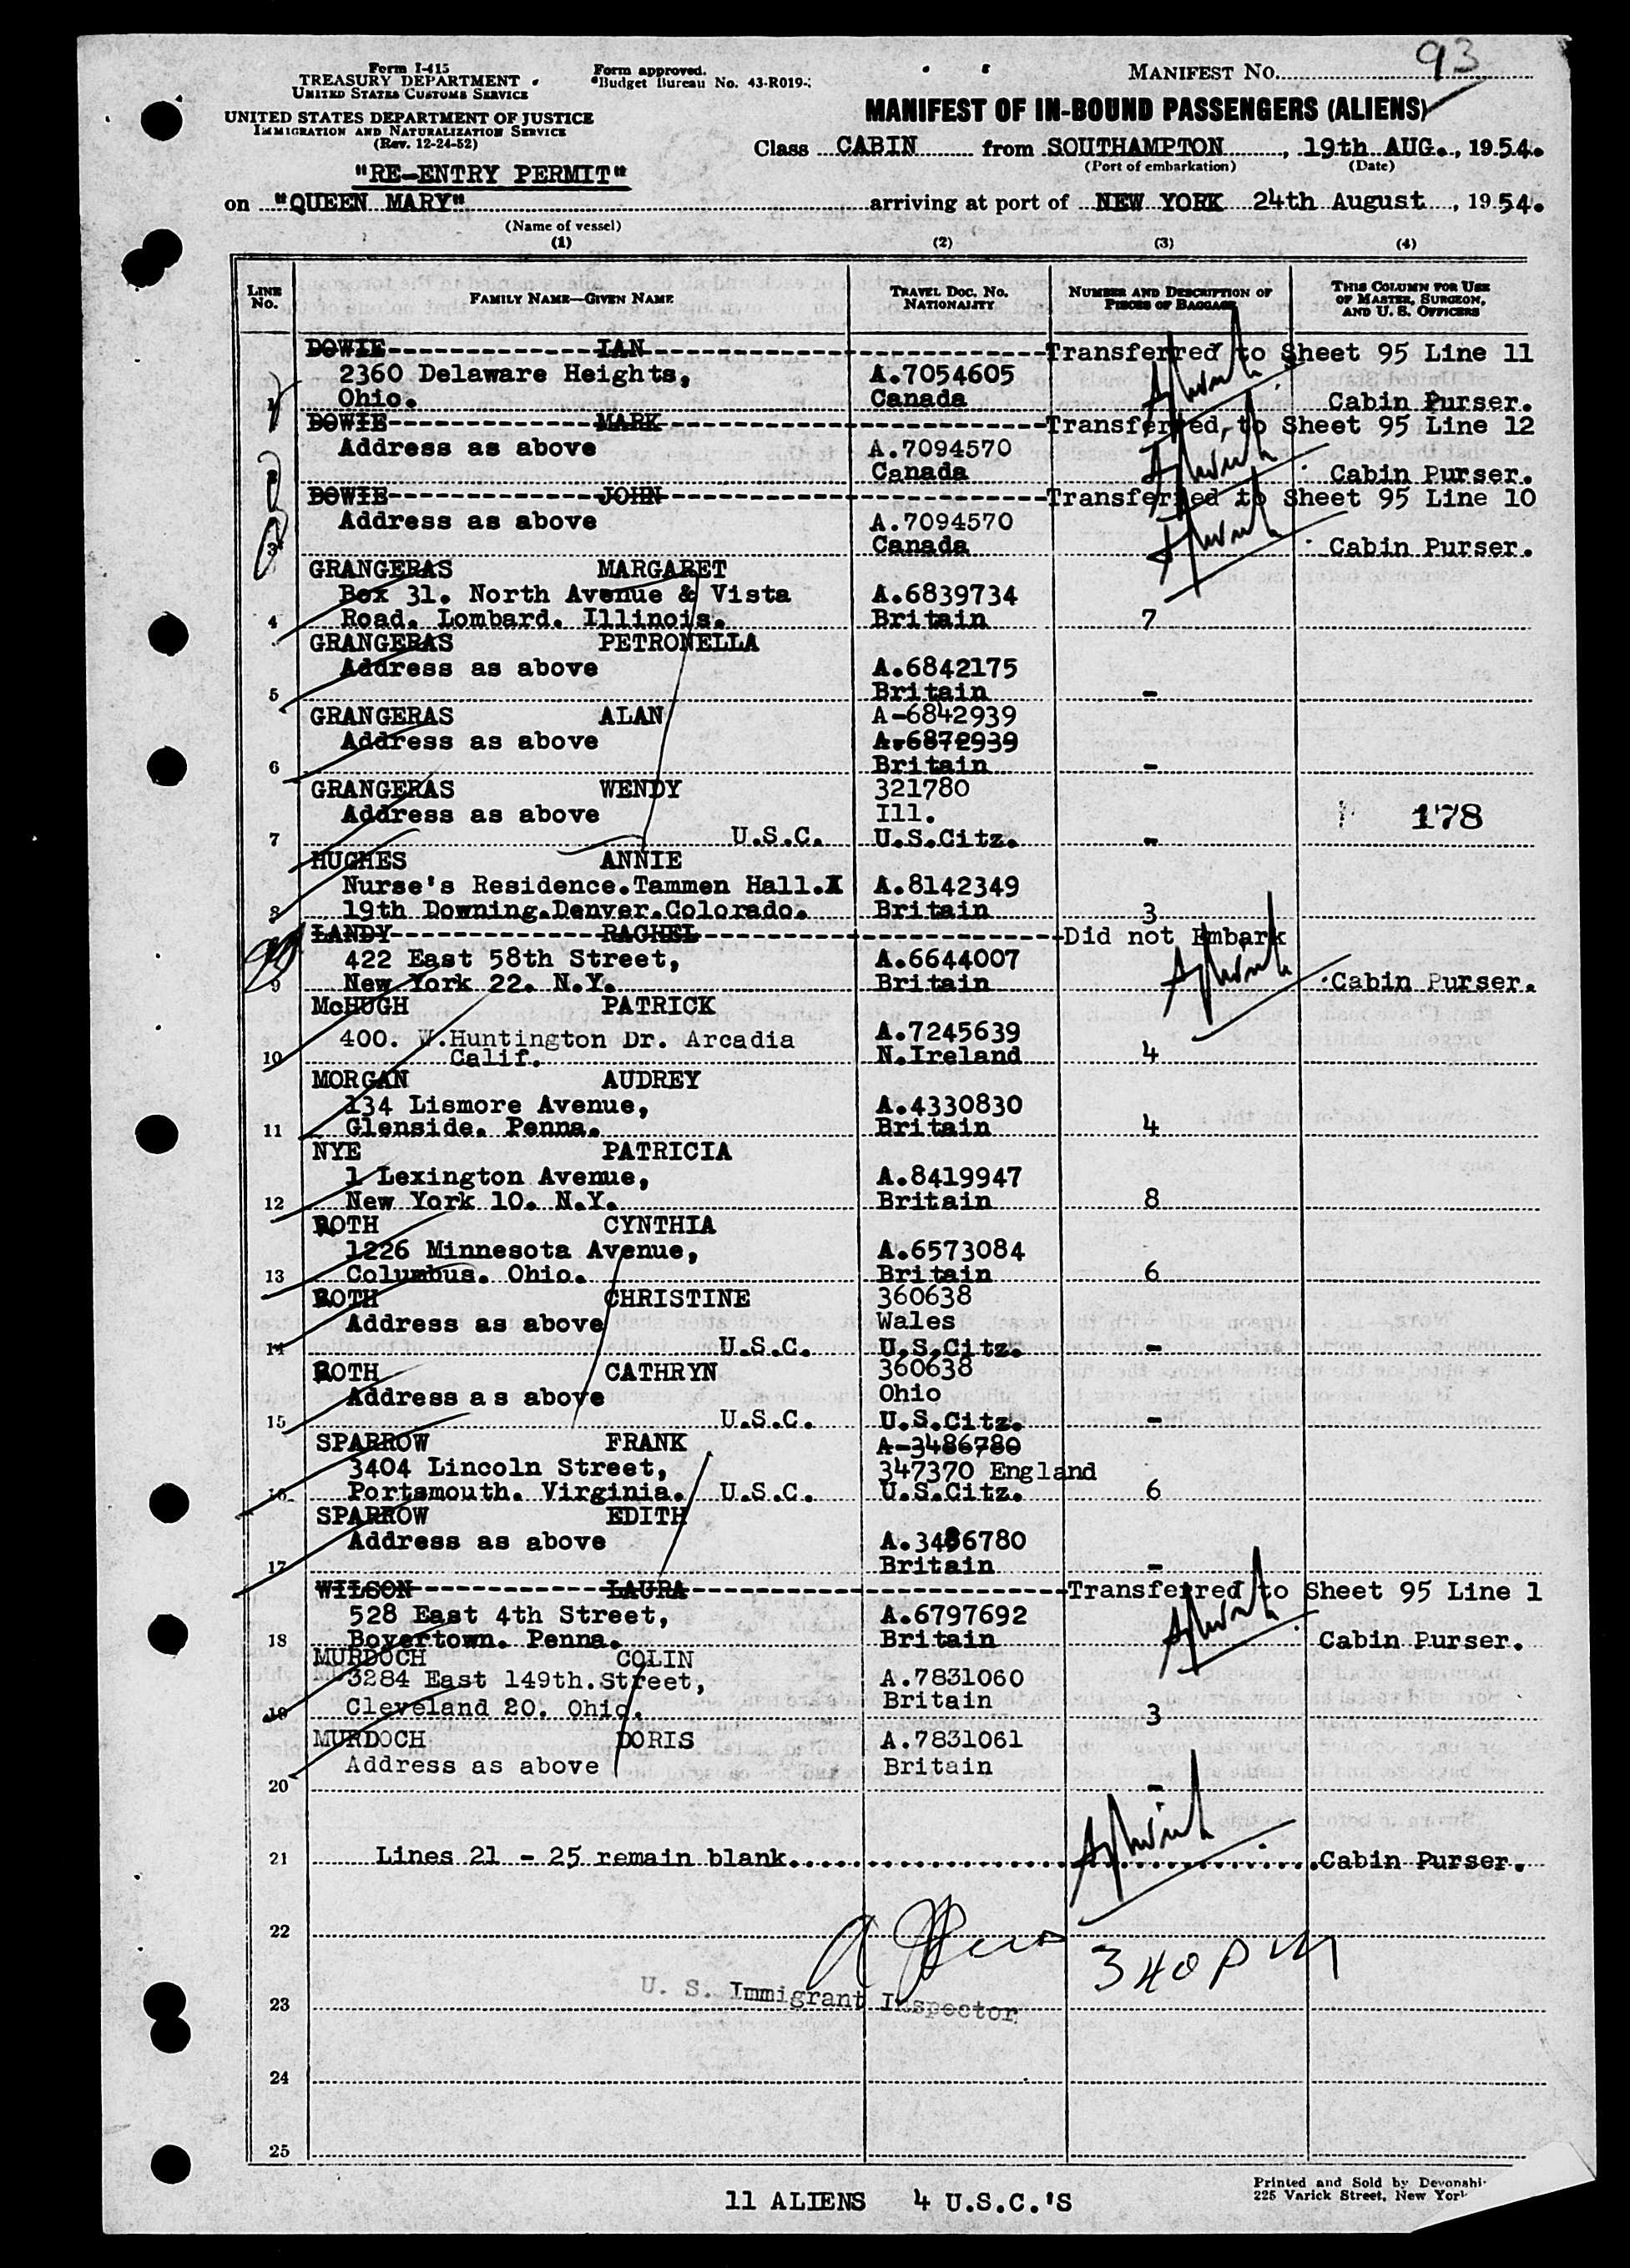 Form I-415
TREASURY DEPARTMENT
UNITED STATES CUSTOMS SERVICE
UNITED STATES DEPARTMENT OF JUSTICE
IMMIGRATION AND NATURALIZATION SERVICE
(Rev. 12-24-52)
Form approved.
Budget Bureau No. 43-R019-
MANIFEST NO. 93
MANIFEST OF IN-BOUND PASSENGERS (ALIENS)
Class CABIN from SOUTHAMPTON, 19th AUG., 1954.
(Port of embarkation) (Date)
"RE-ENTRY PERMIT"
on "QUEEN MARY" arriving at port of NEW YORK 24th August, 1954.
(Name of vessel)
(1) (2) (3) (4)
LINE No. FAMILY NAME—GIVEN NAME TRAVEL DOC. NO. NATIONALITY NUMBER AND DESCRIPTION OF PIECES OF BAGGAGE THIS COLUMN FOR USE OF MASTER, SURGEON, AND U. S. OFFICERS
DOWIE IAN Transferred to Sheet 95 Line 11
2360 Delaware Heights, A.7054605
1 Ohio. Canada Cabin Purser.
DOWIE MARK Transferred, to Sheet 95 Line 12
Address as above A.7094570
2 Canada Cabin Purser.
DOWIE JOHN Transferred to Sheet 95 Line 10
Address as above A.7094570
3 Canada Cabin Purser.
GRANGERAS MARGARET
Box 31. North Avenue & Vista A.6839734
4 Road. Lombard. Illinois. Britain 7
GRANGERAS PETRONELLA
Address as above A.6842175
5 Britain -
GRANGERAS ALAN A-6842939
Address as above A.6872939
6 Britain -
GRANGERAS WENDY 321780
Address as above Ill. 178
7 U.S.C. U.S.Citz. -
HUGHES ANNIE
Nurse's Residence.Tammen Hall. A.8142349
8 19th Downing.Denver.Colorado. Britain 3
LANDY RACHEL Did not Embark
422 East 58th Street, A.6644007
9 New York 22. N.Y. Britain Cabin Purser.
McHUGH PATRICK
400. W.Huntington Dr. Arcadia A.7245639
10 Calif. N.Ireland 4
MORGAN AUDREY
134 Lismore Avenue, A.4330830
11 Glenside. Penna. Britain 4
NYE PATRICIA
1 Lexington Avenue, A.8419947
12 New York 10. N.Y. Britain 8
ROTH CYNTHIA
1226 Minnesota Avenue, A.6573084
13 Columbus. Ohio. Britain 6
ROTH CHRISTINE 360638
Address as above Wales
14 U.S.C. U.S.Citz. -
ROTH CATHRYN 360638
Address as above Ohio
15 U.S.C. U.S.Citz. -
SPARROW FRANK A-3486780
3404 Lincoln Street, 347370 England
16 Portsmouth. Virginia. U.S.C. U.S.Citz. 6
SPARROW EDITH
Address as above A.3486780
17 Britain -
WILSON LAURA Transferred to Sheet 95 Line 1
528 East 4th Street, A.6797692
18 Boyertown. Penna. Britain Cabin Purser.
MURDOCH COLIN
3284 East 149th.Street, A.7831060
19 Cleveland 20. Ohio. Britain 3
MURDOCH DORIS A.7831061
Address as above Britain
20 -
21 Lines 21 - 25 remain blank. Cabin Purser.
22
340 PM
U. S. Immigrant Inspector
23
24
25
11 ALIENS 4 U.S.C.'S
Printed and Sold by
225 Varick Street, New